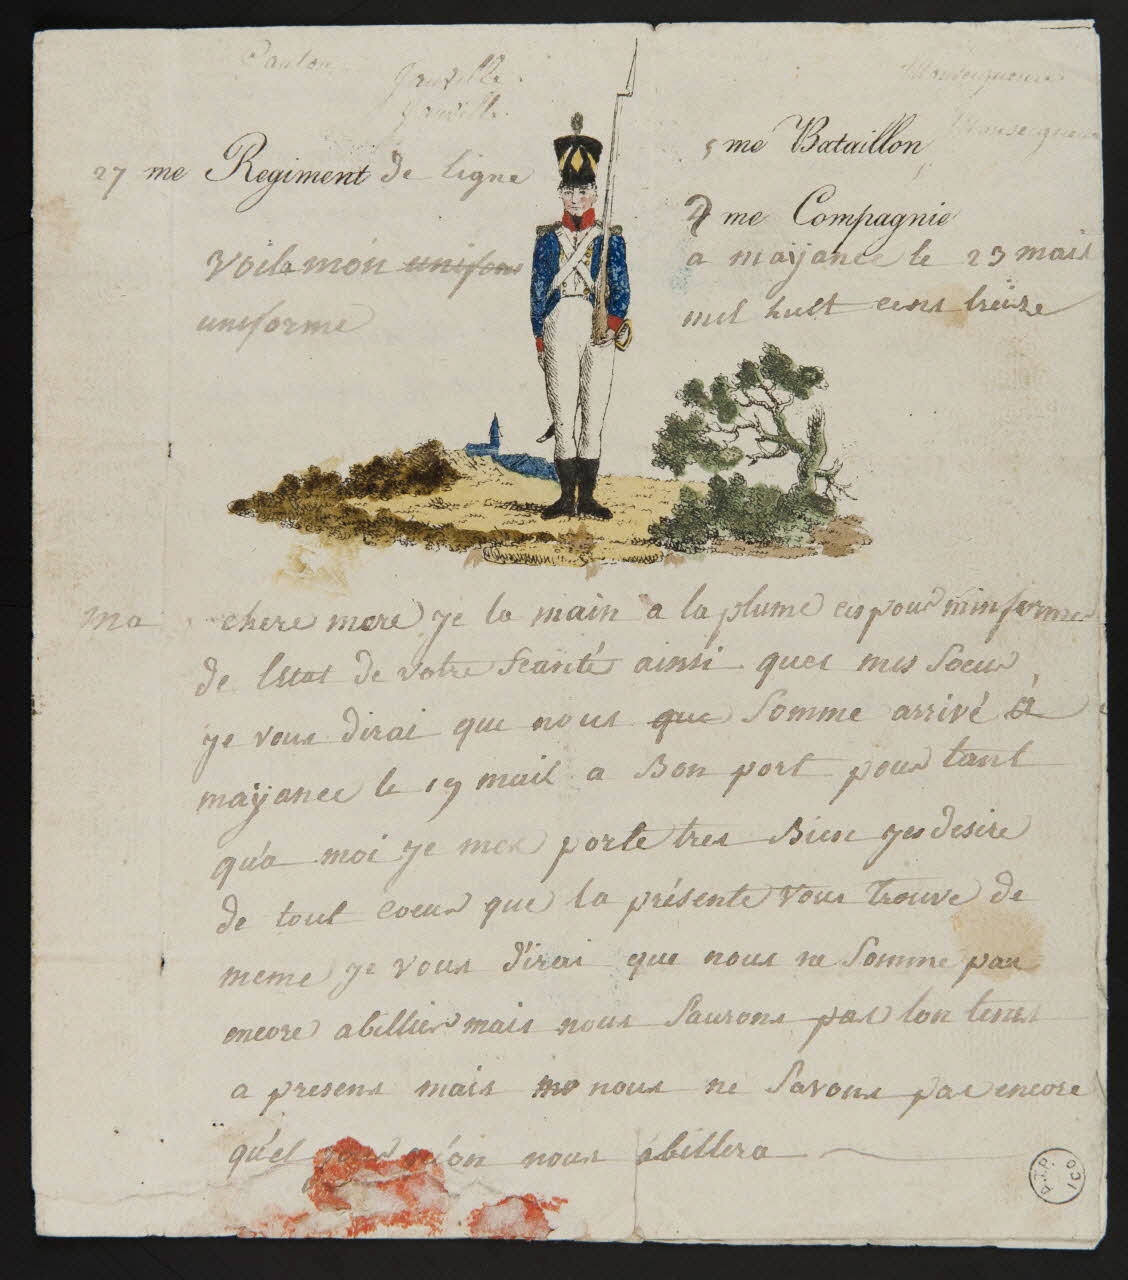 Gruville
Gruville
Monseigneur
Monseigneur
27 me Regiment de ligne
5 me Bataillon
4 me Compagnie
voila mon unifor
uniforme
a mayance le 23 mais
mil huit cens treize
ma chere mere je la main a la plume ces pour minformer
de letat de votre Seanté ainsi ques mes Soeur
je vous dirai que nous que Somme arrivé á
mayance le 19 mail a Bon port pour tant
qu'a moi je mes porte tres Bien jes desire
de tout coeur que la présente vous trouve de
meme je vous dirai que nous ne Somme pas
encore abillier mais nous Saurons pas lon tems
a presens mais no nous ne Savons pas encore
qu'el jour n'on nous abillera